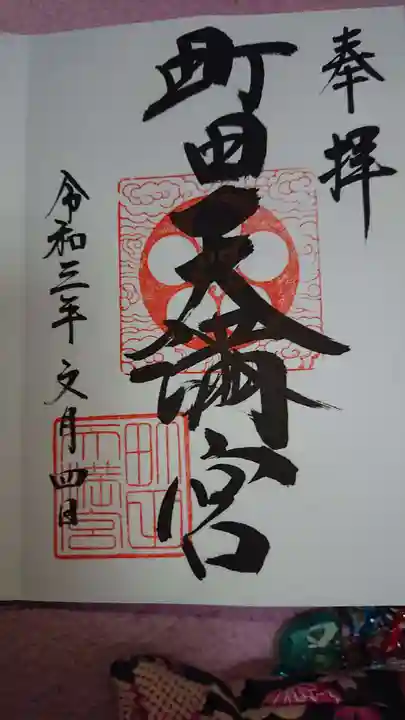 奉拝
町田天満宮
令和三年文月四日
町田天満宮